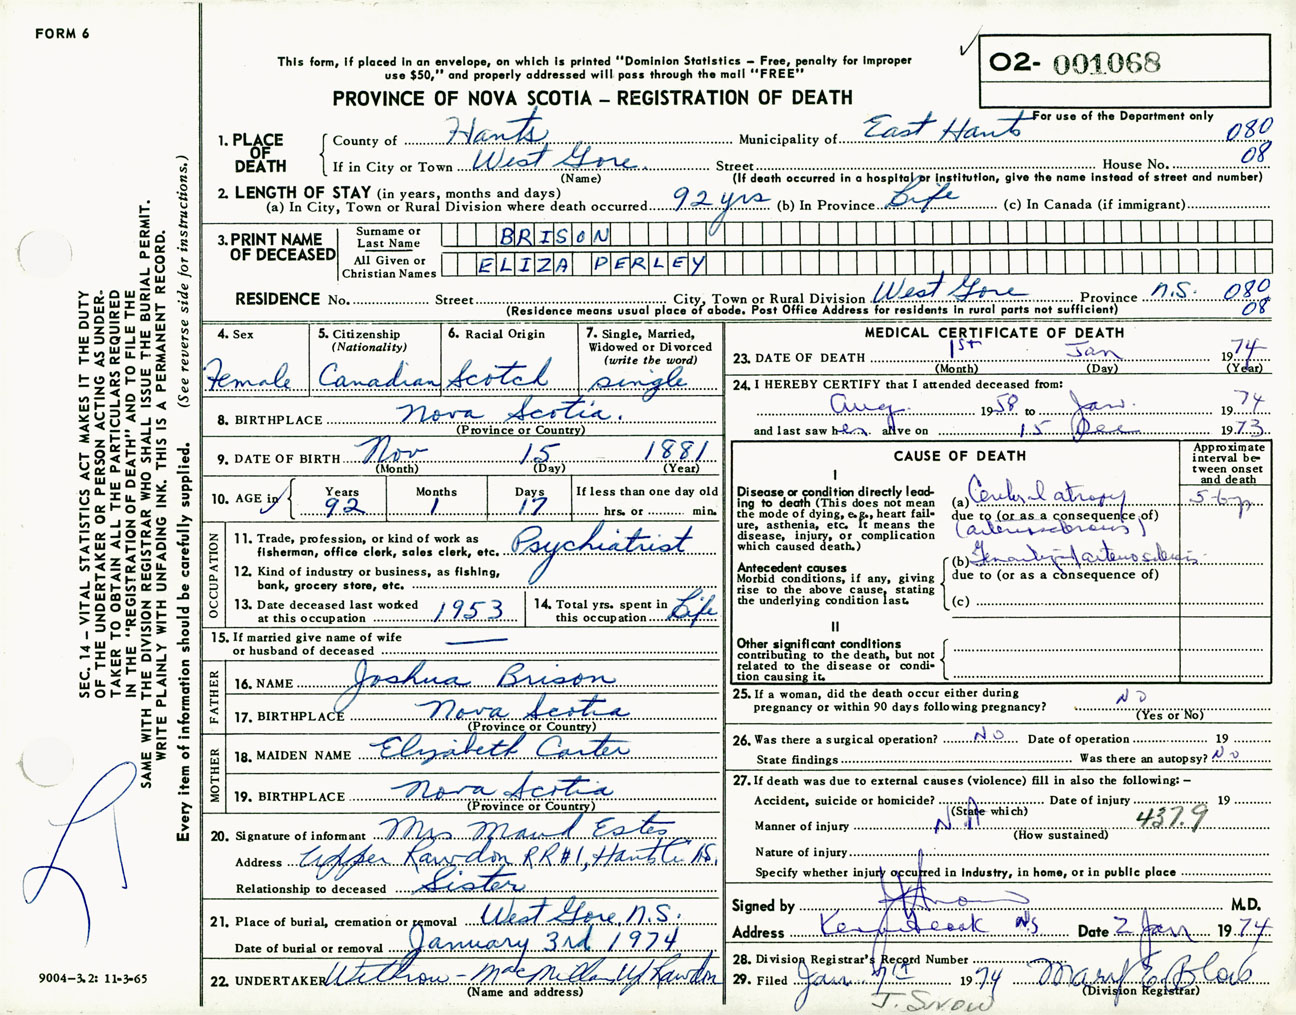 FORM 6
This form, if placed in an envelope, on which is printed "Dominion Statistics – Free, penalty for improper
use $50," and properly addressed will pass through the mail "FREE"
PROVINCE OF NOVA SCOTIA – REGISTRATION OF DEATH
02- 001068
For use of the Department only
1. PLACE OF DEATH
County of Hants Municipality of East Hants 080
If in City or Town West Gore. Street House No. 08
(Name) (If death occurred in a hospital or institution, give the name instead of street and number)
2. LENGTH OF STAY (in years, months and days)
(a) In City, Town or Rural Division where death occurred 92 yrs (b) In Province Life (c) In Canada (if immigrant)
3. PRINT NAME OF DECEASED
Surname or Last Name BRISON
All Given or Christian Names ELIZA PERLEY
RESIDENCE No. Street City, Town or Rural Division West Gore Province N.S. 080
(Residence means usual place of abode. Post Office Address for residents in rural parts not sufficient) 08
4. Sex Female
5. Citizenship (Nationality) Canadian
6. Racial Origin Scotch
7. Single, Married, Widowed or Divorced (write the word) single
8. BIRTHPLACE Nova Scotia.
(Province or Country)
9. DATE OF BIRTH Nov 15 1881
(Month) (Day) (Year)
10. AGE in Years 92 Months 1 Days 17 If less than one day old
hrs. or min.
OCCUPATION
11. Trade, profession, or kind of work as
fisherman, office clerk, sales clerk, etc. Psychiatrist
12. Kind of industry or business, as fishing,
bank, grocery store, etc.
13. Date deceased last worked at this occupation 1953
14. Total yrs. spent in this occupation Life
15. If married give name of wife
or husband of deceased —
FATHER
16. NAME Joshua Brison
17. BIRTHPLACE Nova Scotia
(Province or Country)
MOTHER
18. MAIDEN NAME Elizabeth Carter
19. BIRTHPLACE Nova Scotia
(Province or Country)
20. Signature of informant Mrs Maud Estes
Address Upper Rawdon RR#1, Hants Co. N.S.
Relationship to deceased Sister
21. Place of burial, cremation or removal West Gore, N.S.
Date of burial or removal January 3rd 1974
22. UNDERTAKER Withrow - MacMillan Up Rawdon
(Name and address)
MEDICAL CERTIFICATE OF DEATH
23. DATE OF DEATH 1st Jan 1974
(Month) (Day) (Year)
24. I HEREBY CERTIFY that I attended deceased from:
Aug. 1958 to Jan. 1974
and last saw her alive on 15 Dec 1973
CAUSE OF DEATH
Approximate interval between onset and death
I
Disease or condition directly lead-
ing to death (This does not mean
the mode of dying, e.g., heart fail-
ure, asthenia, etc. It means the
disease, injury, or complication
which caused death.)
(a) Cerebral atrophy 5-6 yr
due to (or as a consequence of)
(arteriosclerosis)
Antecedent causes
Morbid conditions, if any, giving
rise to the above cause, stating
the underlying condition last.
(b) Generalized arteriosclerosis
due to (or as a consequence of)
(c)
II
Other significant conditions
contributing to the death, but not
related to the disease or condi-
tion causing it.
25. If a woman, did the death occur either during
pregnancy or within 90 days following pregnancy? NO
(Yes or No)
26. Was there a surgical operation? NO Date of operation 19
State findings Was there an autopsy? NO
27. If death was due to external causes (violence) fill in also the following: –
Accident, suicide or homicide? Date of injury 19
(State which)
Manner of injury NA 437.9
(How sustained)
Nature of injury
Specify whether injury occurred in industry, in home, or in public place
Signed by M.D.
Address Kennetcook NS Date 2 Jan 1974
28. Division Registrar's Record Number
29. Filed Jan 7th 1974 Mary E. Blois
(Division Registrar)
J. Snow
SEC. 14 – VITAL STATISTICS ACT MAKES IT THE DUTY
OF THE UNDERTAKER OR PERSON ACTING AS UNDER-
TAKER TO OBTAIN ALL THE PARTICULARS REQUIRED
IN THE "REGISTRATION OF DEATH" AND TO FILE THE
SAME WITH THE DIVISION REGISTRAR WHO SHALL ISSUE THE BURIAL PERMIT.
WRITE PLAINLY WITH UNFADING INK. THIS IS A PERMANENT RECORD.
Every item of information should be carefully supplied. (See reverse side for instructions.)
9004-3.2: 11-3-65